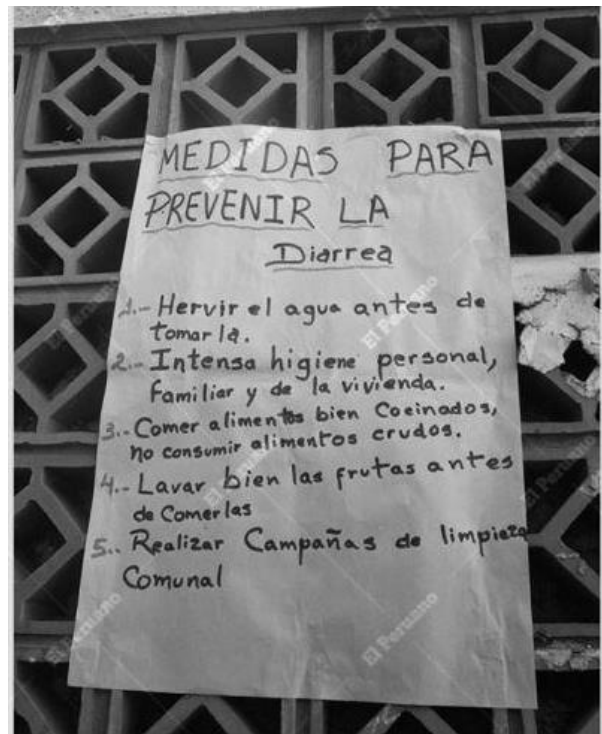 MEDIDAS PARA
PREVENIR LA
Diarrea
1.- Hervir el agua antes de
tomarla.
2.- Intensa higiene personal,
familiar y de la vivienda.
3.- Comer alimentos bien Cocinados,
no consumir alimentos crudos.
4.- Lavar bien las frutas antes
de Comerlas
5.. Realizar Campañas de limpieza
Comunal
El Peruano